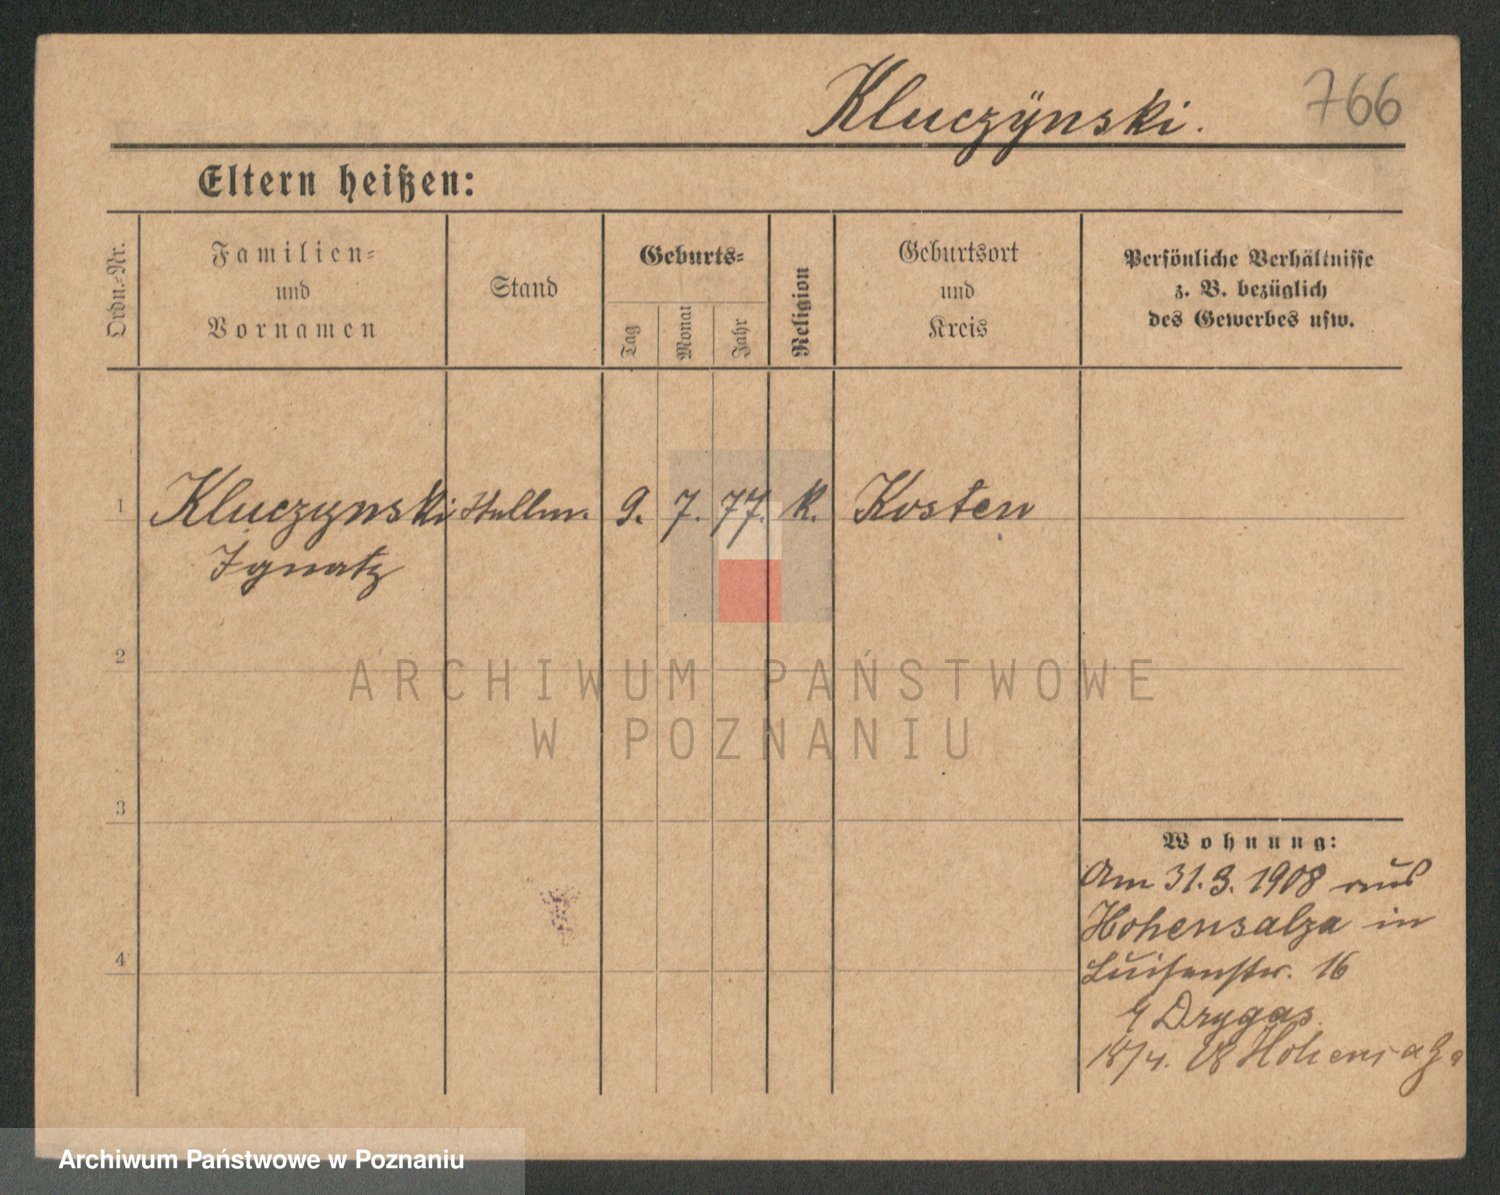 Kluczÿnski.
766
Eltern heißen:
Ordn.-Nr.
Familien-
und
Vornamen
Stand
Geburts-
Tag
Monat
Jahr
Religion
Geburtsort
und
Kreis
Persönliche Verhältnisse
z. B. bezüglich
des Gewerbes usw.
1
Kluczynski
Stellm.
9. 7. 77. k. Kosten
Ignatz
2
ARCHIWUM PAŃSTWOWE
W POZNANIU
3
Wohnung:
Am 31.3.1908 aus
Hohensalza in
4
Luisenstr. 16
Drygas.
18/4. 08 Hohensalza
Archiwum Państwowe w Poznaniu